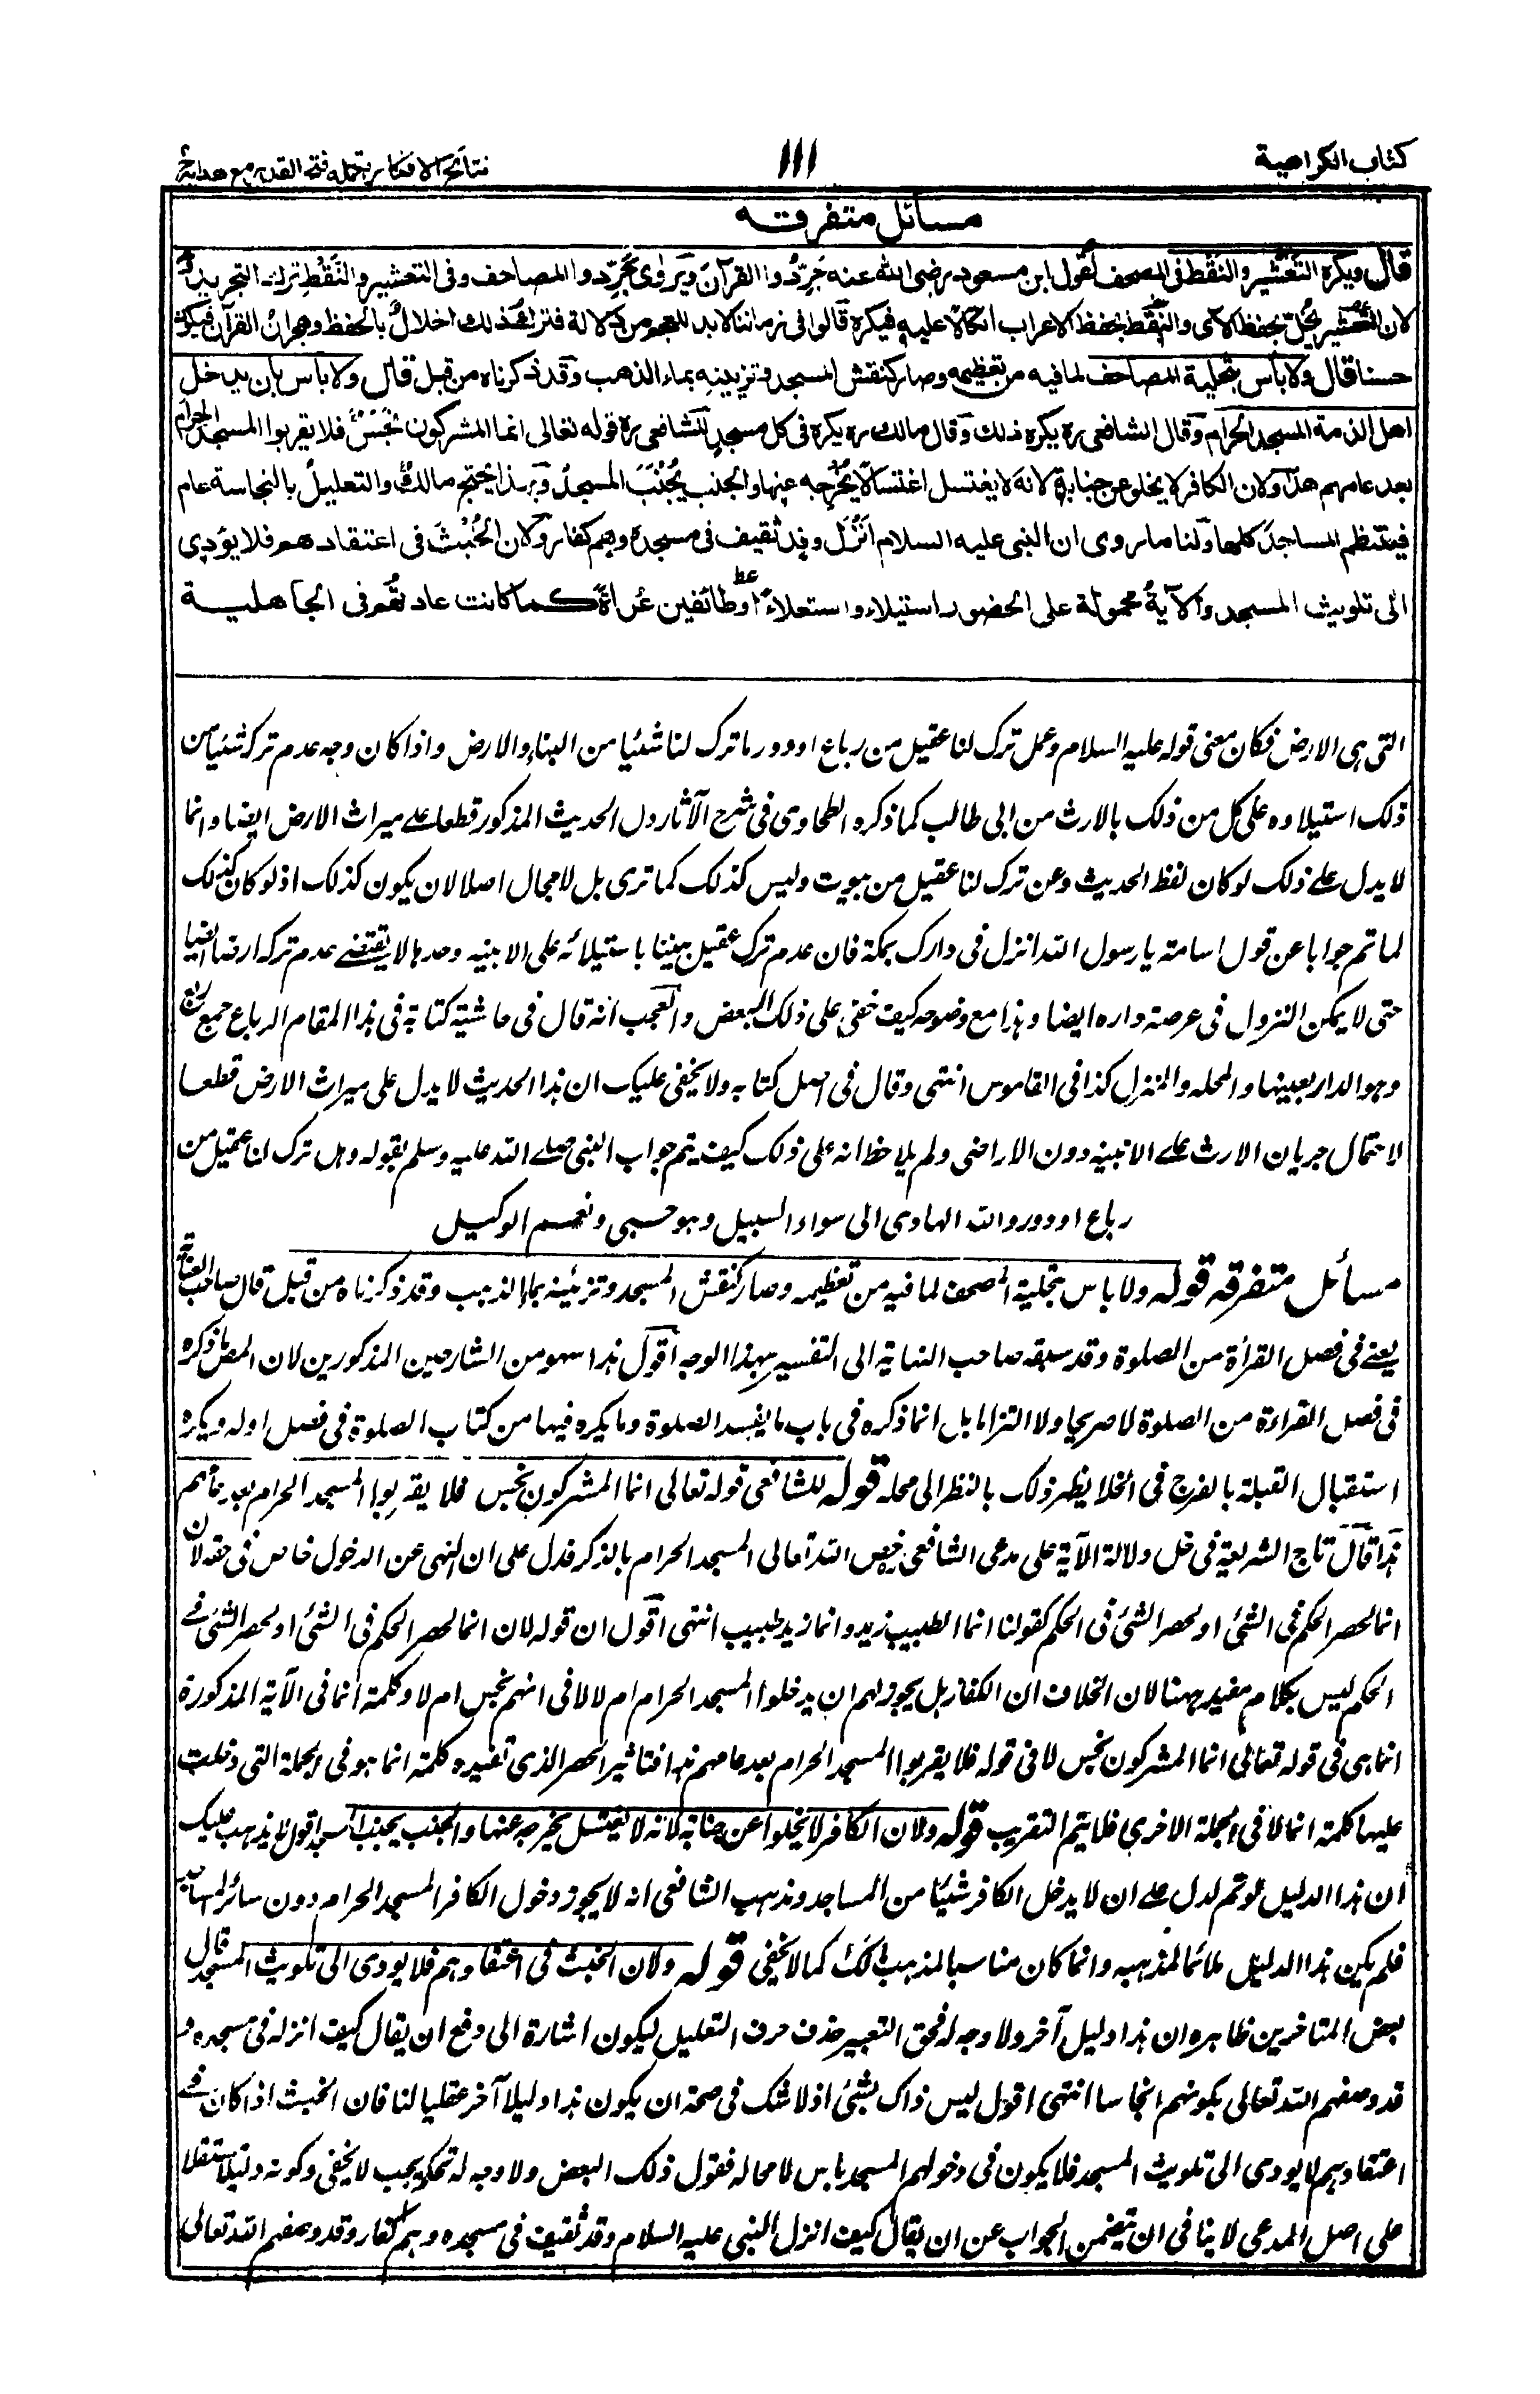 كتاب الكراهية
١١١
نتائج الافكار تكملة فتح القدير مع هداية ج
مسائل متفرقه
قال ويكره التعشير والنقط فى المصحف لقول ابن مسعود رضى الله عنه جَرِّدُوا القرآنَ ويروى جَرِّدوا المصاحف وفى التعشير والنَقْطِ ترك التجريد و
لان التعشير يُخِلّ بحفظ الآى والنقط بحفظ الاعراب اتكالًا عليه فيكره قالوا فى زماننا لابد للعجم من دلالة فترك ذلك اخلالٌ بالحفظ وهجرانُ القرآن فيكون
حسنا قال ولا بأس بتحلية المصاحف لما فيه من تعظيمه وصار كنقش المسجد وتزيينه بماء الذهب وقد ذكرناه من قبل قال ولا باس بان يدخل
اهل الذمة المسجد الحرام وقال الشافعى ره يكره ذلك وقال مالك ره يكره فى كل مسجدٍ للشافعى ره قوله تعالى انما المشركون نَجَسٌ فلا يقربوا المسجد الحرام
بعد عامهم هذا ولان الكافر لا يخلو عن جنابةٍ لانه لا يغتسل اغتسالًا يُخْرِجه عنها والجنب يُجَنَّبُ المسجدَ وبهذا يحتج مالكٌ والتعليلُ بالنجاسة عام
فينتظم المساجدَ كلها ولنا ما روى ان النبى عليه السلام اَنْزَلَ وفد ثقيف فى مسجده وهم كفار ولان الخُبْثَ فى اعتقادهم فلا يؤدى
الى تلويث المسجد والآيةُ محمولة على الحضور استيلاء واستعلاءً او طائفين عُراةً كما كانت عادتُهم فى الجاهلية
التى هى الارض فكان معنى قوله عليه السلام وهل ترك لنا عقيل من رباع او دور ما ترك لنا شئيا من البناء والارض واذا كان وجه عدم تركه شئيا من
ذلك استيلاوه على كل من ذلك بالارث من ابى طالب كما ذكره الطحاوى فى شرح الآثار دل الحديث المذكور قطعا على ميراث الارض ايضا وانما
لا يدل على ذلك لو كان لفظ الحديث وهل ترك لنا عقيل من بيوت وليس كذلك كما ترى بل لا مجال اصلا لان يكون كذلك اذ لو كان كذلك
لما تم جوابا عن قول اسامة يا رسول الله انزل فى دارك بمكة فان عدم ترك عقيل بيتنا باستيلائه على الابنيه وحدها لا يقتضى عدم تركه ارضا ايضا
حتى لا يمكن النزول فى عرصة داره ايضا وهذا مع وضوحه كيف خفى على ذلك البعض والعجب انه قال فى حاشية كتابه فى هذا المقام الرباع جمع ربع
وهو الدار بعينها والمحله والمنزل كذا فى القاموس انتهى وقال فى اصل كتابه ولا يخفى عليك ان هذا الحديث لا يدل على ميراث الارض قطعا
لاحتمال جريان الارث على الابنيه دون الاراضى ولم يلاحظ انه على ذلك كيف يتم جواب النبى صلى الله عليه وسلم بقوله وهل ترك لنا عقيل من
رباع او دور والله الهادى الى سواء السبيل وهو حسبى ونعم الوكيل
مسائل متفرقه قوله ولا باس بتحلية المصحف لما فيه من تعظيمه وصار كنقش المسجد وتزئينه بماء الذهب وقد ذكرناه من قبل قال صاحب العناية
يعنى فى فصل القرأة من الصلوة وقد سبقه صاحب النهاية الى التفسير بهذا الوجه اقول هذا سهو من الشارحين المذكورين لان المص ما ذكره
فى فصل القراءة من الصلوة لا صريحا ولا التزاما بل انما ذكره فى باب ما يفسد الصلوة وما يكره فيها من كتاب الصلوة فى فصل اوله ويكره
استقبال القبلة بالفرج فى الخلا يظهر ذلك بالنظر الى محله قوله للشافعى قوله تعالى انما المشركون نجس فلا يقربوا المسجد الحرام بعد عامهم
هذا قال تاج الشريعة فى حل دلالة الآية على مدعى الشافعى خص الله تعالى المسجد الحرام بالذكر فدل على ان النهى عن الدخول خاص فى حقه لان
انما لحصر الحكم فى الشئ او لحصر الشئ فى الحكم كقولنا انما الطبيب زيد وانما زيد طبيب انتهى اقول ان قوله لان انما لحصر الحكم فى الشئ او لحصر الشئ فى
الحكم ليس بكلام مفيد ههنا لان الخلاف ان الكفار هل يجوز لهم ان يدخلوا المسجد الحرام ام لا لا فى انهم نجس ام لا وكلمة انما فى الآية المذكورة
انما هى فى قوله تعالى انما المشركون نجس لا فى قوله فلا يقربوا المسجد الحرام بعد عامهم هذا فتاثير الحصر الذى تفيده كلمة انما هو فى الجملة التى دخلت
عليها كلمة انما لا فى الجملة الاخرى فلا يتم التقريب قوله ولان الكافر لا يخلوا عن جنابة لانه لا يغتسل يخرجه عنها والجنب يجنب المسجد اقول لا يذهب عليك
ان هذا الدليل لو تم لدل على ان لا يدخل الكافر شئيا من المساجد ومذهب الشافعى انه لا يجوز دخول الكافر المسجد الحرام دون سائر المساجد
فلم يكن هذا الدليل ملائما لمذهبه وانما كان مناسبا لمذهب مالك كما لا يخفى قوله ولان الخبث فى اعتقادهم فلا يودى الى تلويث المسجد قال
بعض المتاخرين ظاهره ان هذا دليل آخر ولا وجه له فحق التعبير حذف حرف التعليل ليكون اشارة الى دفع ان يقال كيف انزله فى مسجده و
قد وصفهم الله تعالى بكونهم انجاسا انتهى اقول ليس ذاك بشئ اذ لا شك فى صحة ان يكون هذا دليلا آخر عقليا لنا فان الخبث اذا كان فى
اعتقادهم لا يودى الى تلويث المسجد فلا يكون فى دخولهم المسجد باس لا محاله فقول ذلك البعض ولا وجه له تحكم يجب لا يخفى وكونه دليلا مستقلا
على اصل المدعى لا ينافى ان يتضمن الجواب عن ان يقال كيف انزل النبى عليه السلام وفد ثقيف فى مسجده وهم كفار وقد وصفهم الله تعالى